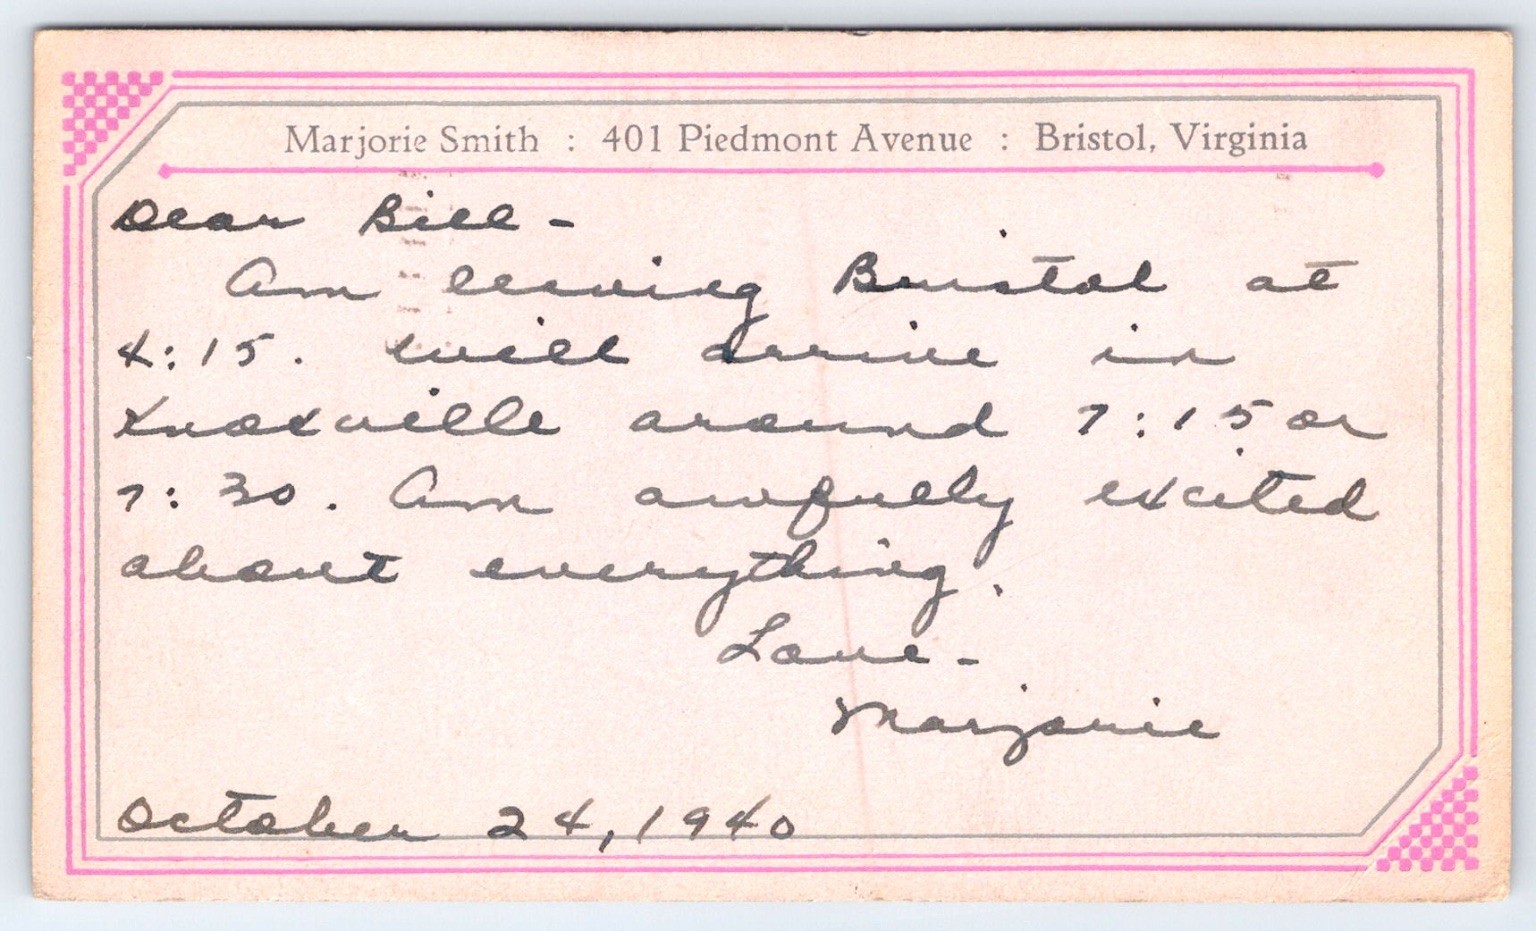 Marjorie Smith : 401 Piedmont Avenue : Bristol, Virginia
Dear Bill -
Am leaving Bristol at
4:15. Will arrive in
Knoxville around 7:15 or
7:30. Am awfully excited
about everything.
Love -
Marjorie
October 24, 1940